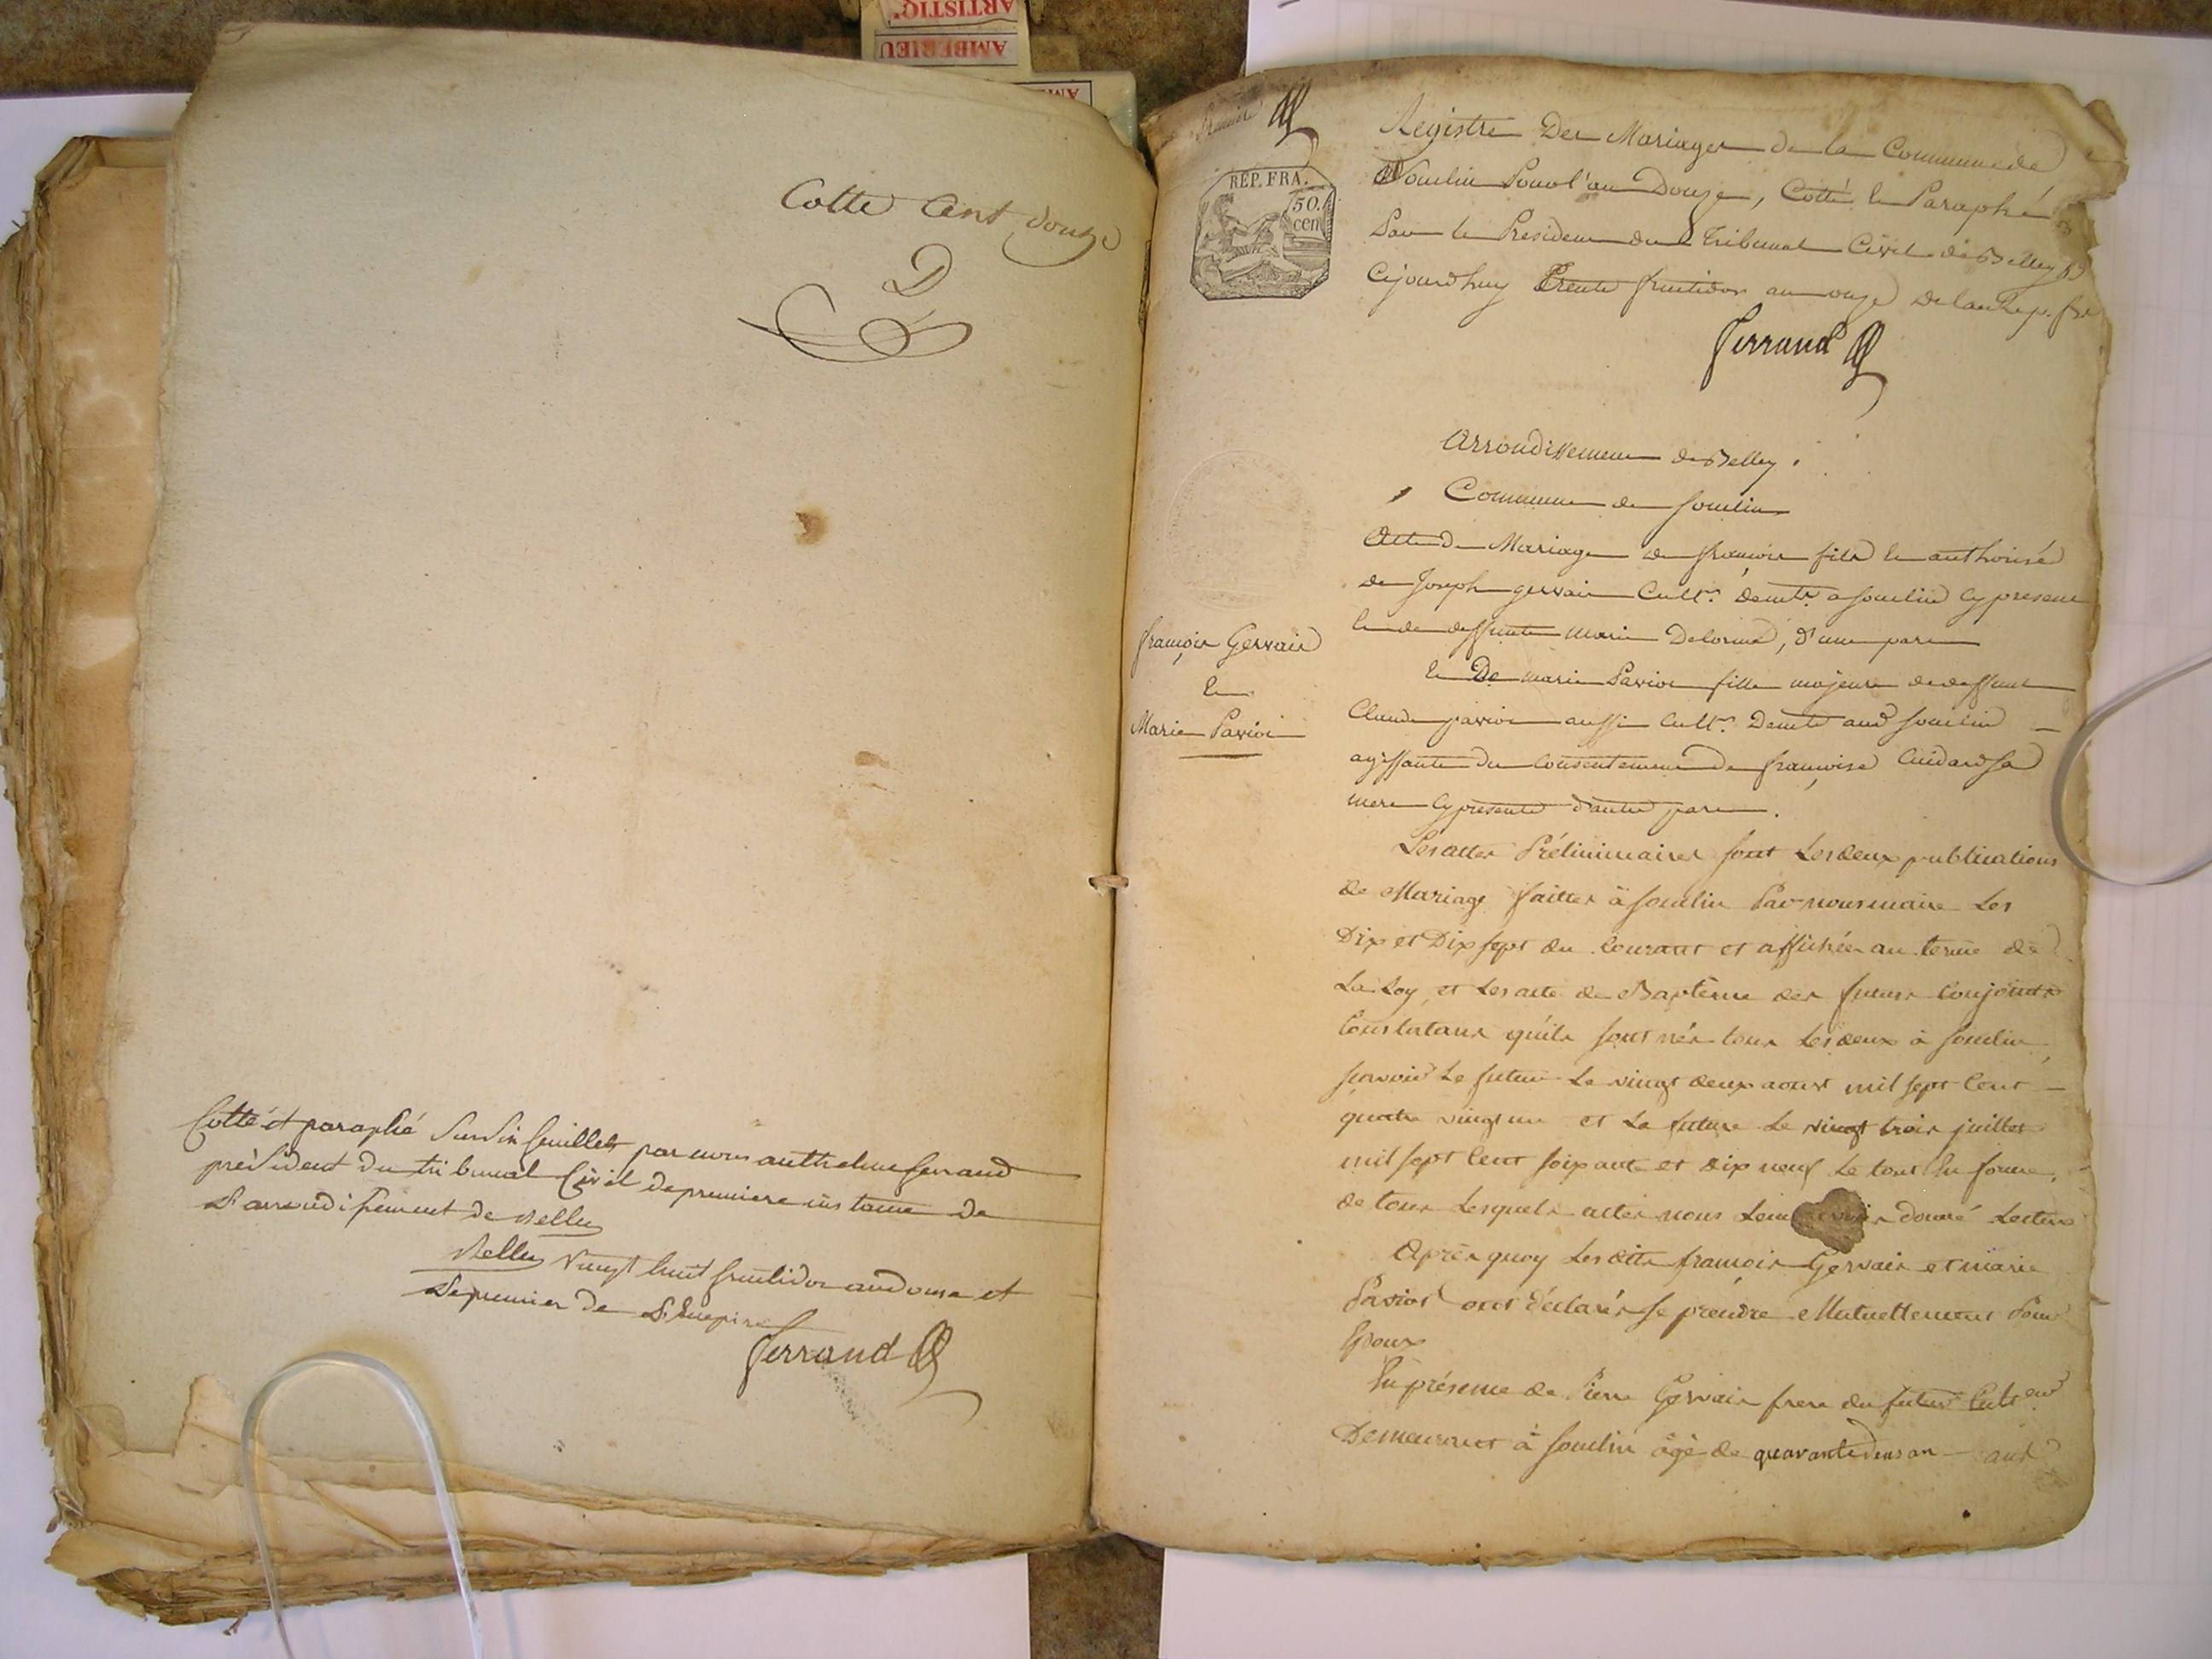 ARTISTIQ'
AMBERIEU
Cotte Cent douze
D
Cotté et paraphé Sur dix feuillets par nous anthelme ferrand
président du tribunal Civil de premiere instance de
L'arrondissement de Belley
Belley vingt huit fructidor an douse et
Le premier de L'Empire
ferrand
RÉP. FRA.
50.
cen
Registre Des Mariages de la Commune de
Souclin Pour l'an Douze, Cotté et Paraphé
Par le President du Tribunal Civil de Belley
Cejourdhuy Trente fructidor an onze De la Rep. fse
ferrand
Arrondissement de Belley.
Commune de Souclin
françois Gervais
Et
Marie Pavioz
Acte de Mariage de françois fils et authorisé
de Joseph gervais Cultr. demt. a Souclin Cy present
et de deffunte Marie Delorme, d'une part
Et De marie Pavioz fille majeure de deffunt
Claude pavioz aussi Cultr. Demt aud Souclin
agissante du Consentement de françoise Cuidard Sa
mere Cy presente d'autre part.
Les actes Préliminaires sont Les deux publications
de Mariage faittes à Souclin Par nous maire Les
Dix et Dix sept du Courant et affichées au terme de
La Loy, et Les acte de Baptême des futurs Conjoints
Constatans qu'ils sont nés tous Les deux à Souclin,
sçavoir Le futur Le vingt deux aoust mil sept Cent
quatre vingt un et La future Le vingt trois juillet
mil sept Cent soixante et dix neuf Le tout En forme,
de tous Lesquels actes nous Leur avons donné Lecture
Après quoy Les dits françois Gervais et marie
Pavioz ont déclarés se prendre Mutuellement Pour
Epoux
En présence de Pierre Gervais frere du futur Culteur
Demeurant à Souclin âgé de quarante deus an aud